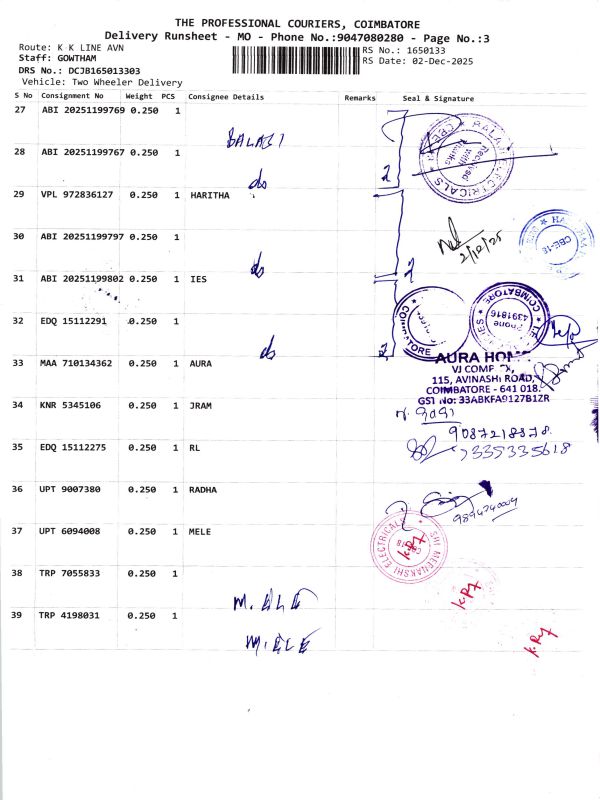 THE PROFESSIONAL COURIERS, COIMBATORE
Delivery Runsheet - MO - Phone No.:9047080280 - Page No.:3
Route: K K LINE AVN
RS No.: 1650133
Staff: GOWTHAM
RS Date: 02-Dec-2025
DRS No.: DCJB165013303
Vehicle: Two Wheeler Delivery
S No Consignment No Weight PCS Consignee Details Remarks Seal & Signature
27 ABI 20251199769 0.250 1
BALAJI
28 ABI 20251199767 0.250 1
do 2
BALAJI ELECTRICALS
Received with Thanks
29 VPL 972836127 0.250 1 HARITHA
2/12/25
CBE-18
30 ABI 20251199797 0.250 1
do 2
31 ABI 20251199802 0.250 1 IES
COIMBATORE
Phone
4391816
32 EDQ 15112291 0.250 1
do 2
COIMBATORE
33 MAA 710134362 0.250 1 AURA
AURA HOM
VJ COMP
115, AVINASHI ROAD,
COIMBATORE - 641 018.
GST No: 33ABKFA9127B1ZR
34 KNR 5345106 0.250 1 JRAM
9087218878
35 EDQ 15112275 0.250 1 RL
7335335618
36 UPT 9007380 0.250 1 RADHA
9894740004
37 UPT 6094008 0.250 1 MELE
SRI MEENAKSHI ELECTRICALS
38 TRP 7055833 0.250 1
M. ELE
39 TRP 4198031 0.250 1
M. ELE